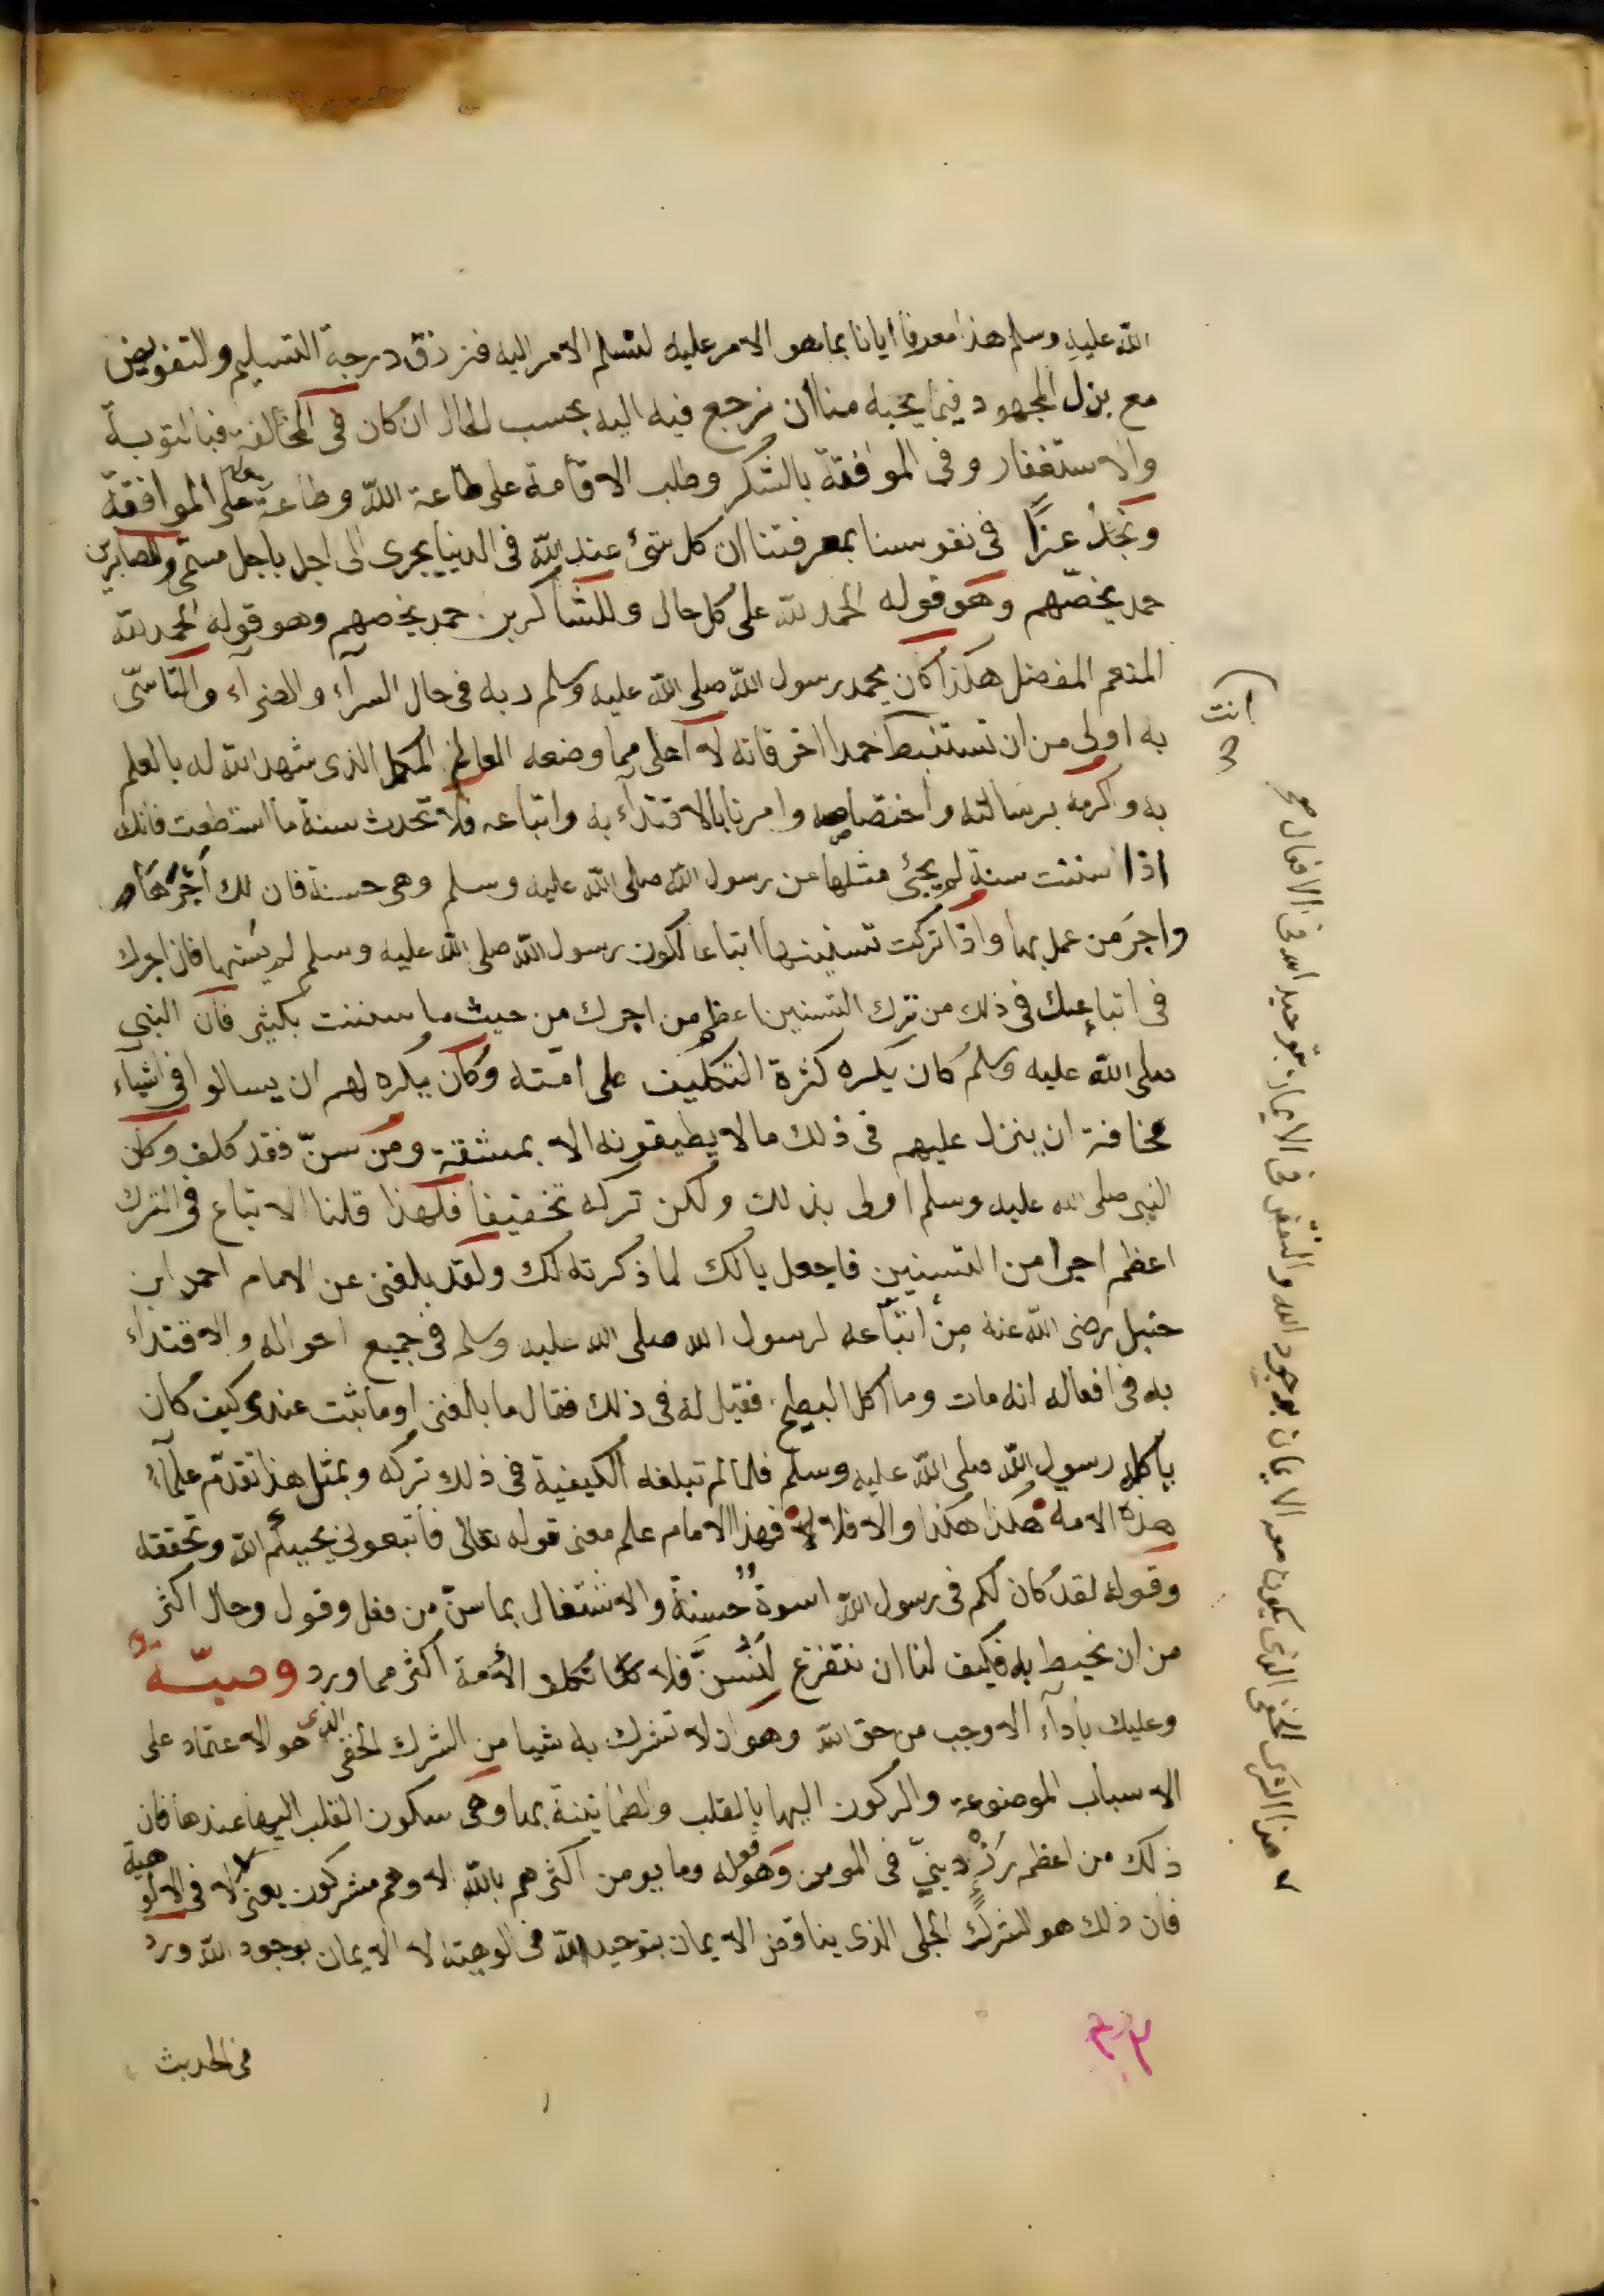 الله عليه وسلم هذا معرفا ايانا بما هو الامر عليه لنسلم الامر اليه فنرزق درجة التسليم والتفويض
مع بذل المجهود فيما يحبه منا ان نرجع فيه اليه بحسب الحال ان كان فى المخالفة فبالتوبة
والاستغفار وفى الموافقة بالشكر وطلب الاقامة على طاعة الله وطاعة رسوله على الموافقة
ونجد عزا فى نفوسنا بمعرفتنا ان كل شئ عند الله فى الدنيا يجرى الى اجل مسمى وللصابرين
حمد يخصهم وهو قوله الحمد لله على كل حال وللشاكرين حمد يخصهم وهو قوله الحمد لله
المنعم المفضل هكذا كان يحمد رسول الله صلى الله عليه وسلم ربه فى حال السرآء والضرآء والتأسى
به اولى من ان تستنبط حمدا اخر فانه لا اعلى مما وضعه العالم المكمل الذى شهد الله له بالعلم
به واكرمه برسالته واختصاصه وامرنا بالاقتدآء به واتباعه فلا تحدث سنة ما استطعت فانك
اذا سننت سنة لم يجئ مثلها عن رسول الله صلى الله عليه وسلم وهى حسنة فان لك اجرها
واجر من عمل بها واذا تركت تسنينها اتباعا لكون رسول الله صلى الله عليه وسلم لم يسنها فان اجرك
فى اتباعك فى ذلك من ترك التسنين اعظم من اجرك من حيث ما سننت بكثير فان النبى
صلى الله عليه وسلم كان يكره كثرة التكليف على امته وكان يكره لهم ان يسالوا فى اشيآء
مخافة ان ينزل عليهم فى ذلك ما لا يطيقونه الا بمشقة ومن سن فقد كلف وكان
النبى صلى الله عليه وسلم اولى بذلك ولكن تركه تخفيفا فلهذا قلنا الاتباع فى الترك
اعظم اجرا من التسنين فاجعل بالك لما ذكرته لك ولقد بلغنى عن الامام احمد ابن
حنبل رضى الله عنه من اتباعه لرسول الله صلى الله عليه وسلم فى جميع احواله والاقتدآء
به فى افعاله انه مات وما اكل البطيخ فقيل له فى ذلك فقال ما بلغنى او ما ثبت عندى كيف كان
ياكله رسول الله صلى الله عليه وسلم فلما لم تبلغه الكيفية فى ذلك تركه وبمثل هذا تقدم علمآء
هذه الامة هكذا هكذا والا فلا لا فهذا الامام علم معنى قوله تعالى فاتبعونى يحببكم الله وتحققه
وقوله لقد كان لكم فى رسول الله اسوة حسنة والاشتغال بما سن من فعل وقول وحال اكثر
من ان نحيط به فكيف لنا ان نتفرغ لنسن فلا تكلف الامة اكثر مما ورد وصية
وعليك بادآء الاوجب من حق الله وهو ان لا تشرك به شيا من الشرك الخفى الذى هو الاعتماد على
الاسباب الموضوعة والركون اليها بالقلب والطمانينة بها وهى سكون القلب اليها عندها فان
ذلك من اعظم رزء دينى فى المومن وهو قوله وما يومن اكثرهم بالله الا وهم مشركون يعنى لا فى الالوهية
فان ذلك هو الشرك الجلى الذى يناقض الايمان بتوحيد الله فى الوهيته لا الايمان بوجود الله ورد
فى الحديث
انت
هذا الشرك الخفى الذى يكون معه الايمان بوجود الله والنقض فى الايمان بتوحيد الله فى الافعال صح
٢٣